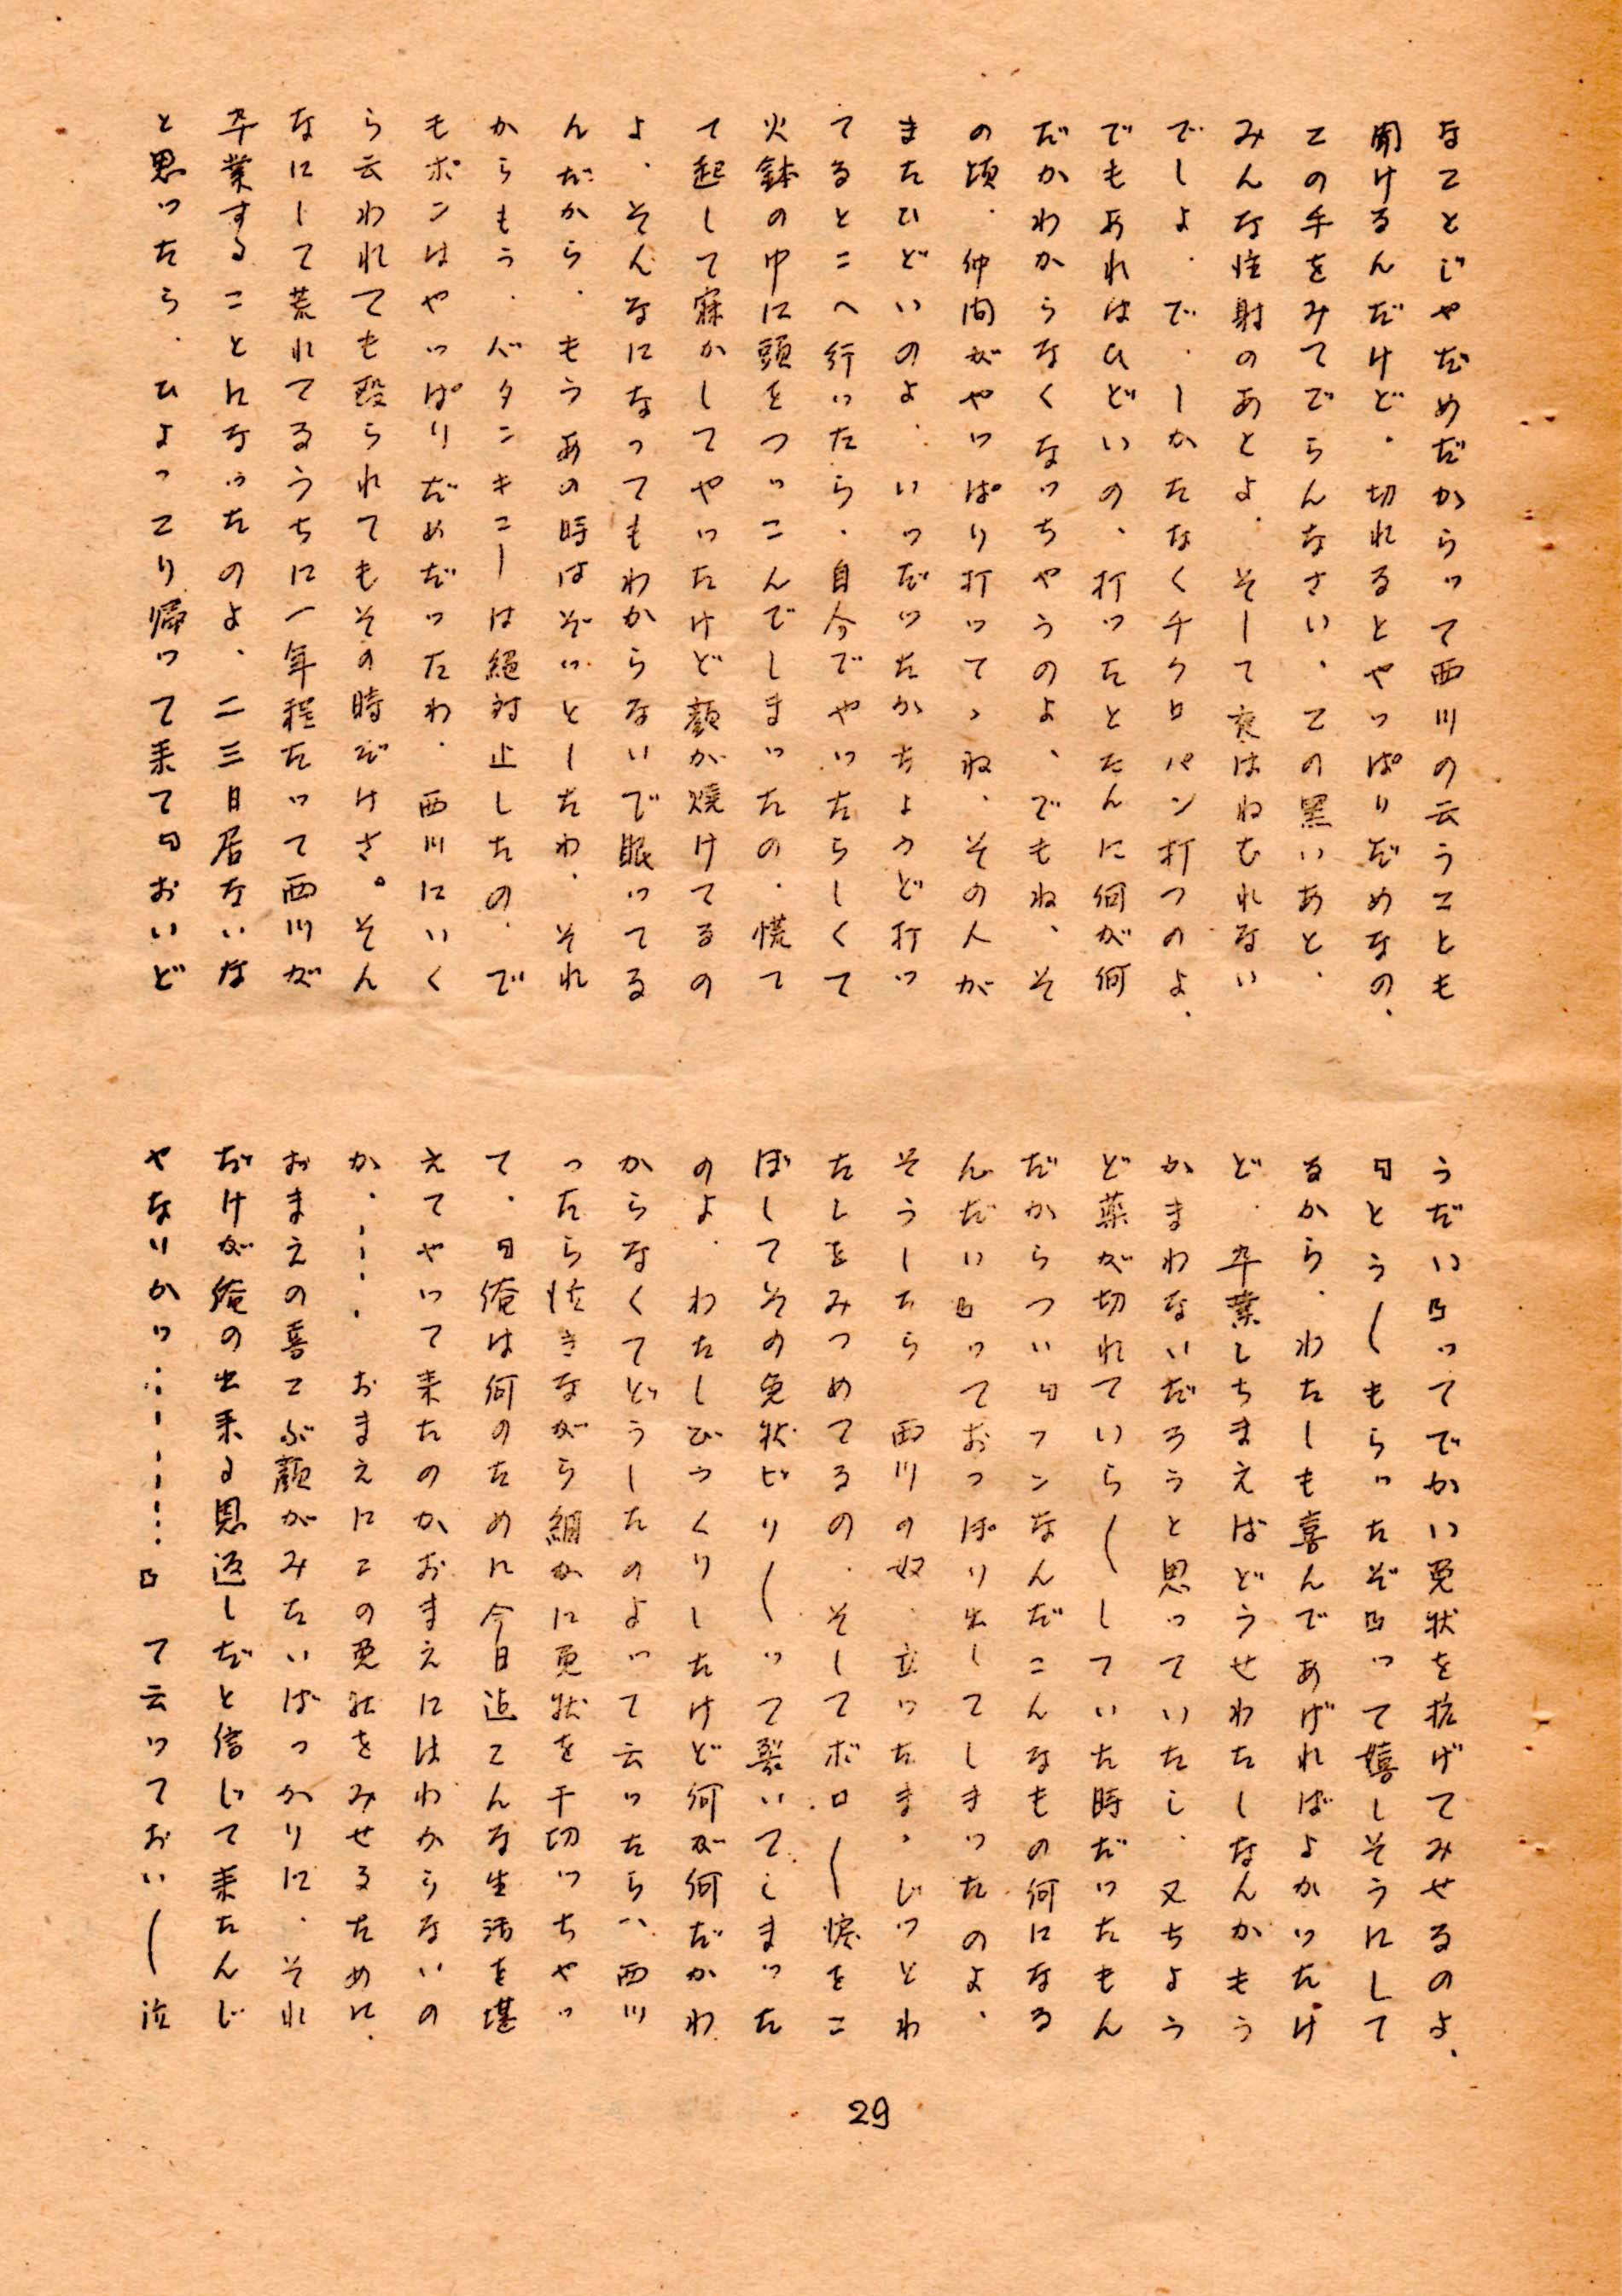 なことじやだめだからって西川の云うことも
聞けるんだけど、切れるとやっぱりだめなの、
この手をみてごらんなさい、この黒いあと、
みんな注射のあとよ、そして夜はねむれない
でしよ、で、しかたなくチクロパン打つのよ、
でもあれはひどいの、打ったとたんに何が何
だかわからなくなっちやうのよ、でもね、そ
の頃、仲間がやっぱり打ってゝね、その人が
またひどいのよ、いつだったかちようど打っ
てるとこへ行いたら、自分でやいたらしくて
火鉢の中に頭をつっこんでしまいたの、慌て
て起して寐かしてやったけど顔が焼けてるの
よ、そんなになってもわからないで眠ってる
んだから、もうあの時はぞいとしたわ、それ
からもう、バタンキューは絶対止したの、で
もポンはやっぱりだめだったわ、西川にいく
ら云われても殴られてもその時だけさ。そん
なにして荒れてるうちに一年程たって西川が
卆業することになったのよ、二三日居ないな
と思ったら、ひよっこり帰って来て『おいど
うだい』ってでかい免状を拡げてみせるのよ、
『とうーもらったぞ』って嬉しそうにして
るから、わたしも喜んであげればよかったけ
ど、卆業しちまえばどうせわたしなんかもう
かまわないだろうと思っていたし、又ちよう
ど薬が切れていらーしていた時だったもん
だからつい『フンなんだこんなもの何になる
んだい』っておっぽり出してしまったのよ、
そうしたら 西川の奴、立ったまゝじっとわ
たしをみつめてるの、そしてボローー涙をこ
ぼしてその免状ビリーって裂いてしまった
のよ、わたしびっくりしたけど何が何だかわ
からなくてどうしたのよって云ったら、西川
ったら泣きながら細かに免状を千切っちやっ
て、『俺は何のために今日迠こんな生活を堪
えてやいて来たのかおまえにはわからないの
か、……、おまえにこの免状をみせるために、
おまえの喜こぶ顔がみたいばっかりに、それ
だけが俺の出来る恩返しだと信じて来たんじ
やないかッ…………』て云っておいー泣
29